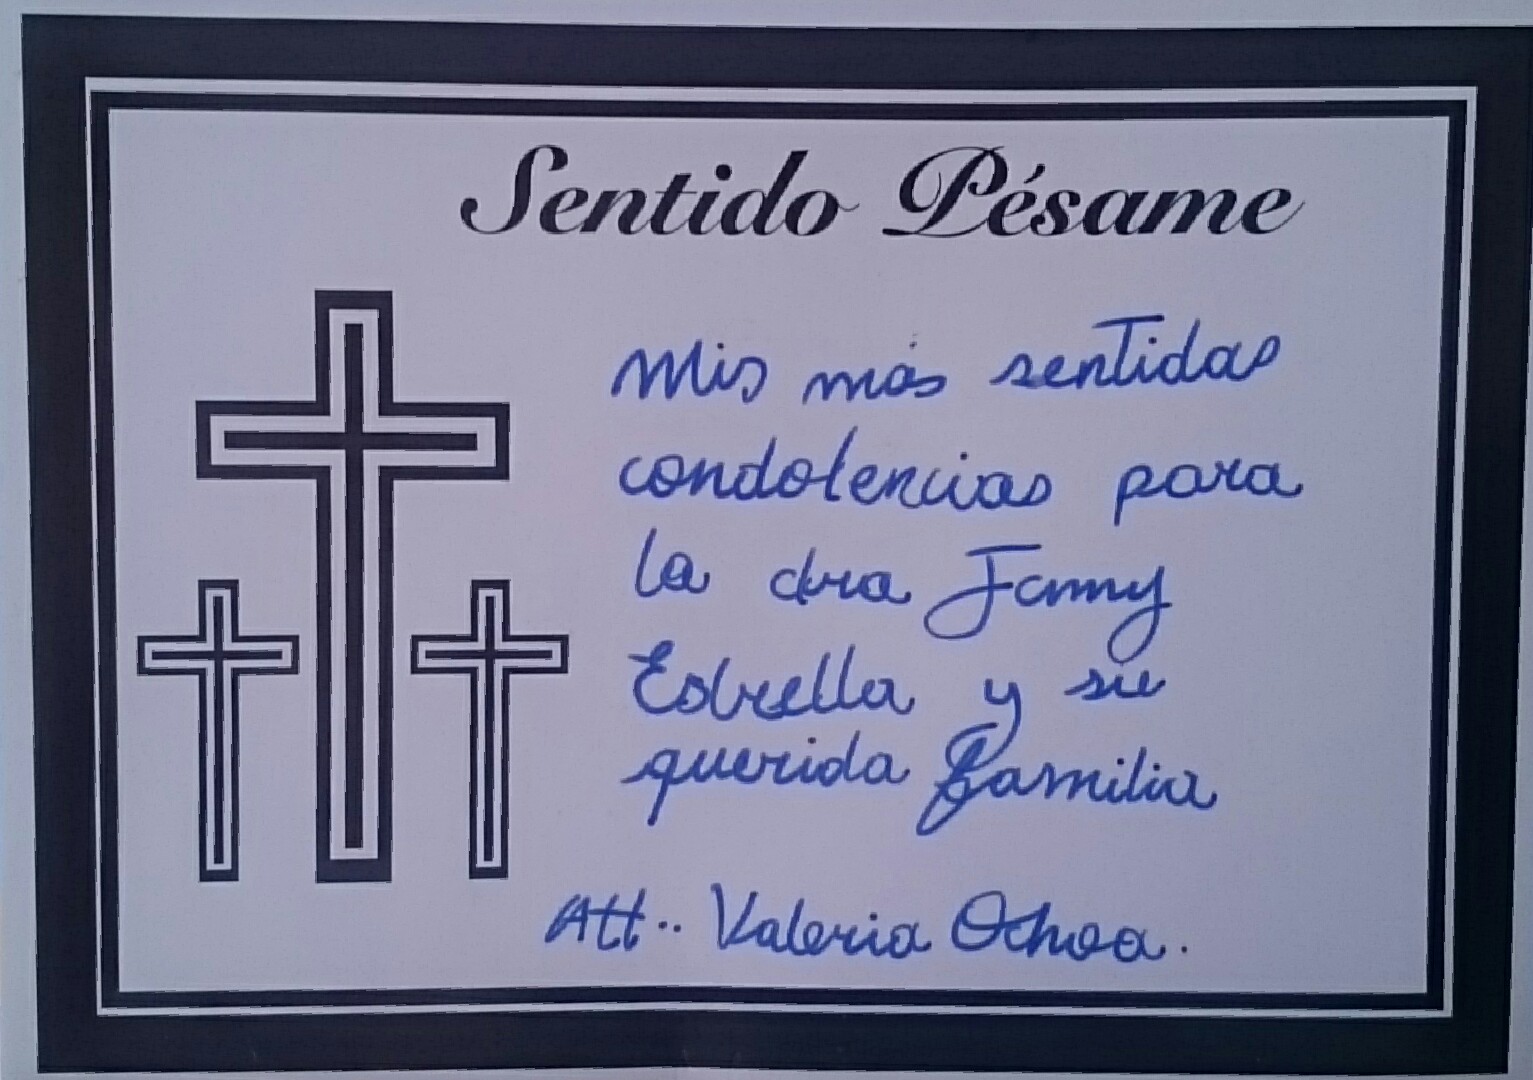 Sentido Pésame
Mis más sentidas
condolencias para
la dra Fanny
Estrella y su
querida familia
Att.. Valeria Ochoa.